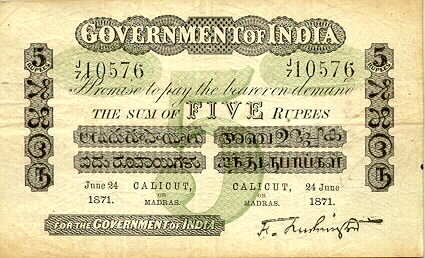 GOVERNMENT OF INDIA
5 RUPEES
5 RUPEES
J/7 10576
J/7 10576
I Promise to pay the bearer on demand
THE SUM OF FIVE RUPEES
ಐದು ರೂಪಾಯಿಗಳು
ஐந்து ரூபாய்கள்
June 24 CALICUT, CALICUT, 24 June
OR OR
1871. MADRAS. MADRAS. 1871.
FOR THE GOVERNMENT OF INDIA